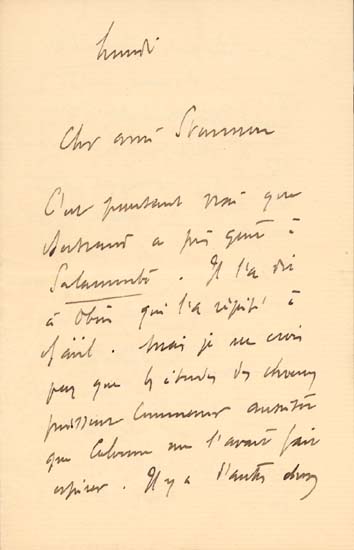 Lundi
Cher ami
C'est pourtant vrai que
Bertrand a pris goût à
Salammbô. Il l'a dit
à Obin qui l'a répété à
. Mais je ne crois
pas que les études des chœurs
puissent commencer aussitôt
que Colonne me l'avait fait
espérer. Il y a d'autres choses